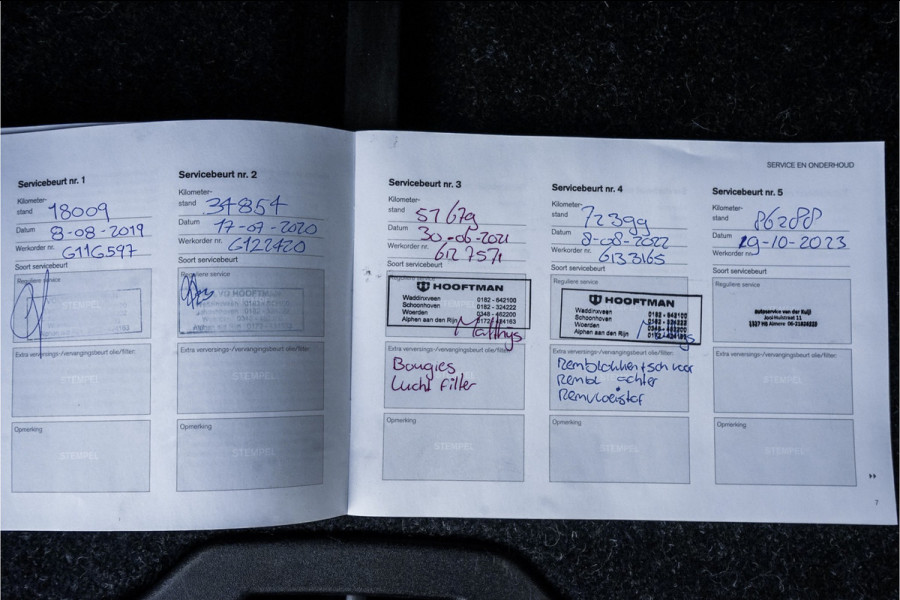 SERVICE EN ONDERHOUD
Servicebeurt nr. 1
Kilometer-
stand 18009
Datum 8-08-2019
Werkorder nr. G116597
Soort servicebeurt
Reguliere service
STEMPEL
Extra verversings-/vervangingsbeurt olie/filter:
STEMPEL
Opmerking
STEMPEL
Servicebeurt nr. 2
Kilometer-
stand 34854
Datum 17-07-2020
Werkorder nr. G122420
Soort servicebeurt
Reguliere service
HOOFTMAN
Extra verversings-/vervangingsbeurt olie/filter:
STEMPEL
Opmerking
STEMPEL
Servicebeurt nr. 3
Kilometer-
stand
Datum 30-06-2021
Werkorder nr. 6127571
Soort servicebeurt
Reguliere service
HOOFTMAN
Waddinxveen 0182 - 642100
Schoonhoven 0182 - 324222
Woerden 0348 - 462200
Alphen aan den Rijn
Matthys
Extra verversings-/vervangingsbeurt olie/filter:
Bougies
Lucht filter
Opmerking
STEMPEL
Servicebeurt nr. 4
Kilometer-
stand 72399
Datum 8-08-2022
Werkorder nr. 6133165
Soort servicebeurt
HOOFTMAN
Waddinxveen 0182 - 642100
Schoonhoven 0182 - 324222
Woerden
Alphen aan den Rijn
Extra verversings-/vervangingsbeurt olie/filter:
Remblokken + sch voor
Rembl achter
Remvloeistof
Opmerking
STEMPEL
Servicebeurt nr. 5
Kilometer-
stand 86288
Datum 19-10-2023
Werkorder nr.
Soort servicebeurt
Reguliere service
autoservice van der Kuijl
Extra verversings-/vervangingsbeurt olie/filter:
STEMPEL
Opmerking
STEMPEL
7